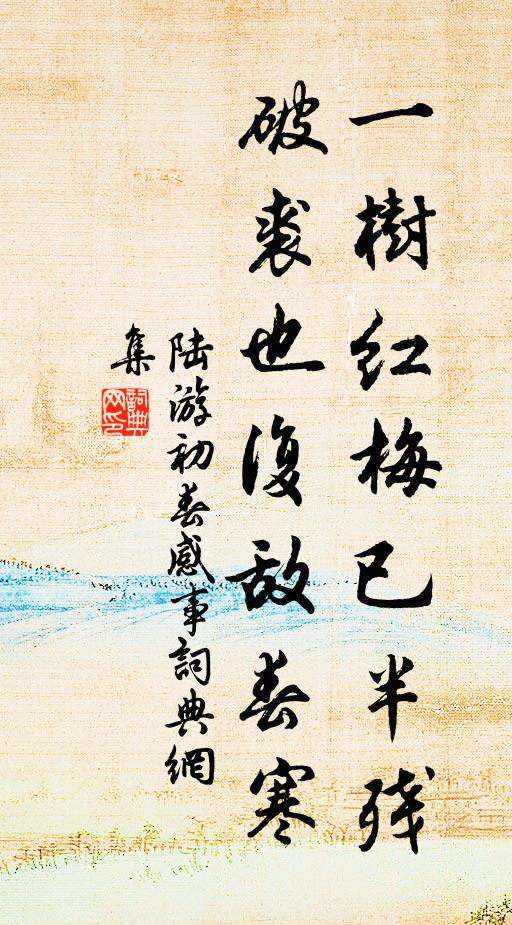 一樹红梅已半殘
破裘也復敵春寒
陸游初春感事詞典網
集
詞典
网印